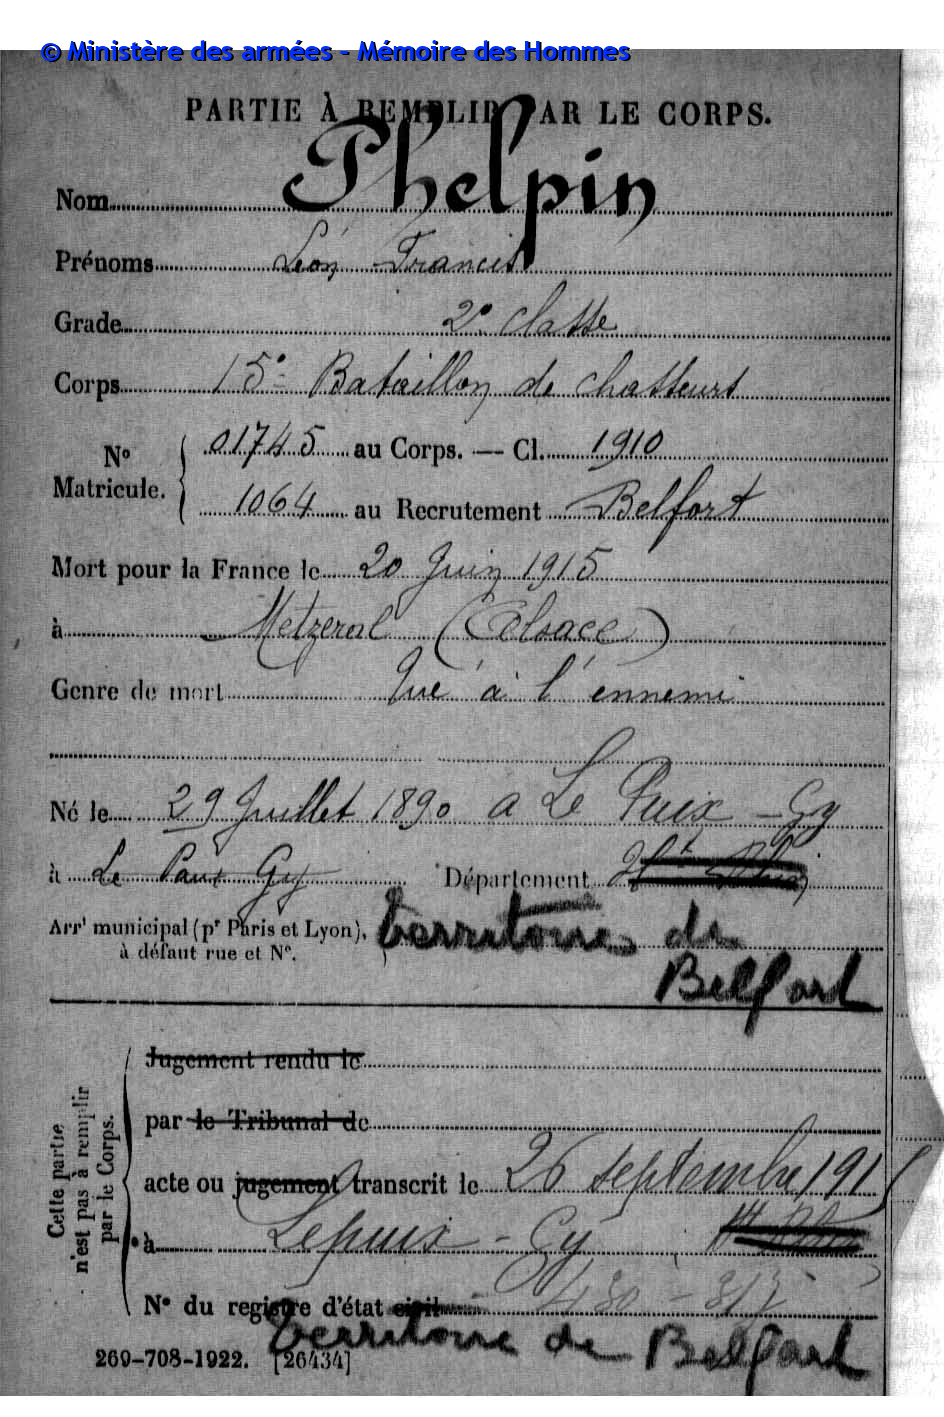 © Ministère des armées - Mémoire des Hommes
PARTIE À REMPLIR PAR LE CORPS.
Nom Phelpin
Prénoms Léon Francis
Grade 2e classe
Corps 15e Bataillon de chasseurs
No Matricule. 01745 au Corps. — Cl. 1910
1064 au Recrutement Belfort
Mort pour la France le 20 Juin 1915
à Metzeral (Alsace)
Genre de mort Tué à l'ennemi
Né le 29 Juillet 1890 a Le Puix - Gy
à Le Puix Gy Département Ht Rhin
Arrt municipal (pr Paris et Lyon), territoire de
à défaut rue et No. Belfort
Cette partie n'est pas à remplir par le Corps.
Jugement rendu le
par le Tribunal de
acte ou jugement transcrit le 26 septembre 1915
à Lepuix - Gy Ht Rhin
No du registre d'état civil
territoire de Belfort
269-708-1922. [26434]